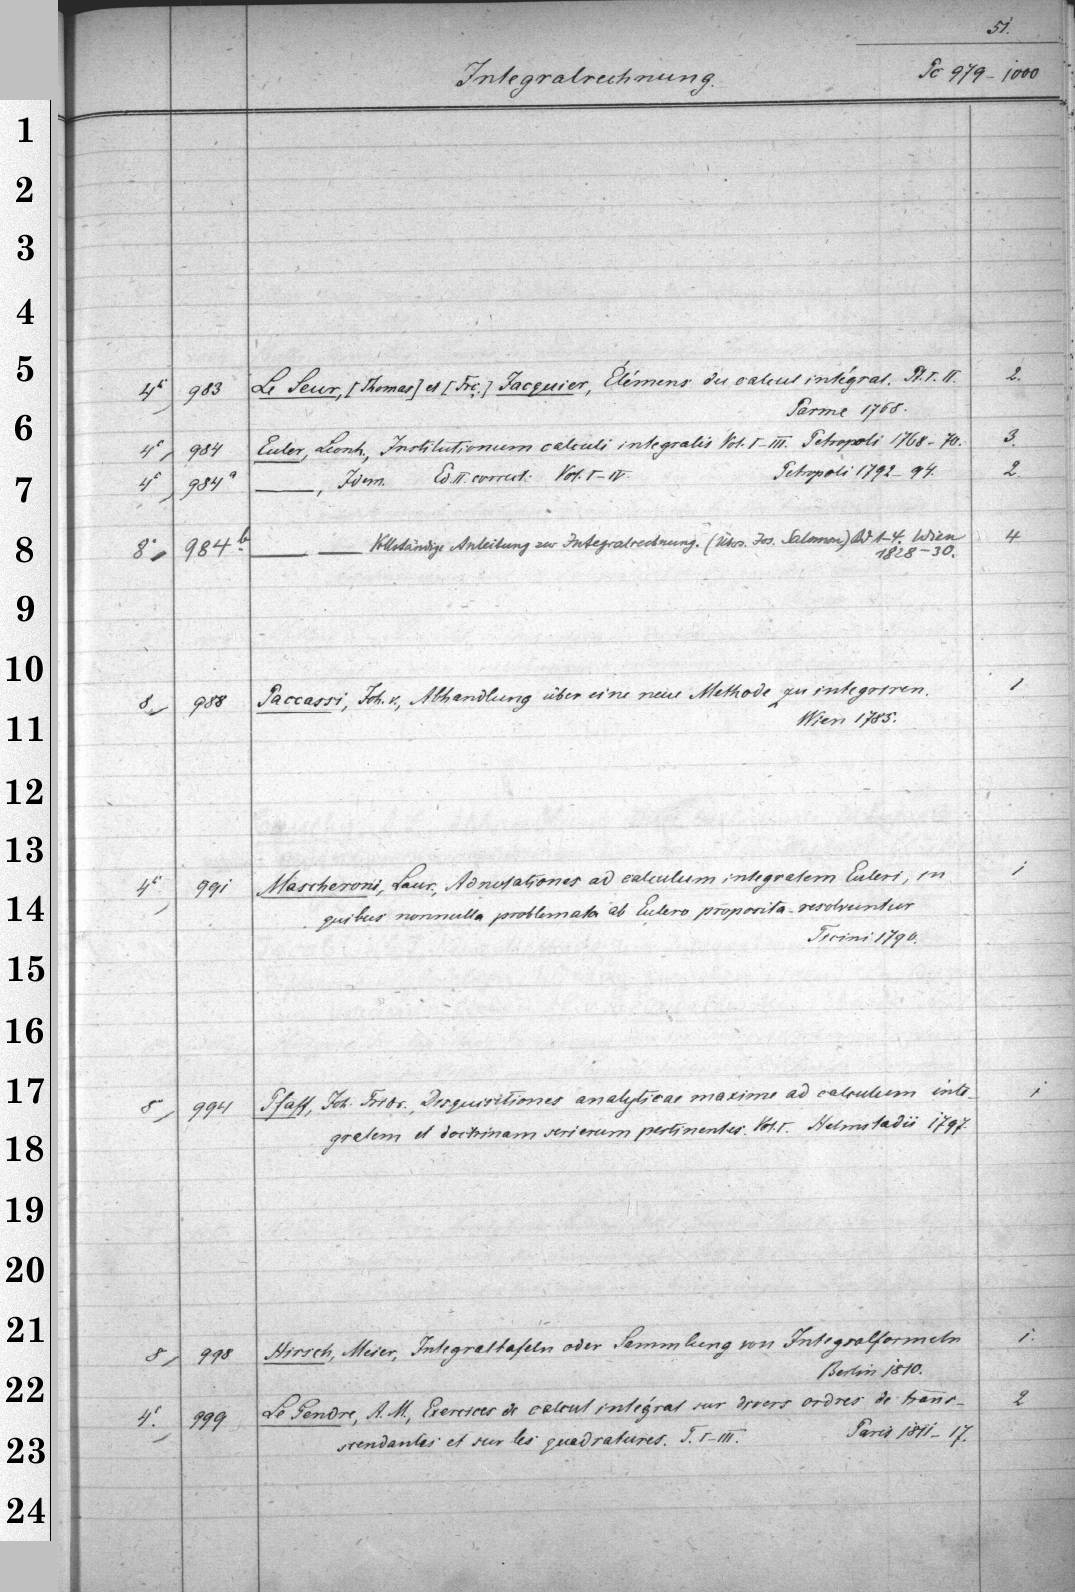 51.
Integralrechnung.
Pc 979-1000
1
2
3
4
5
4° 983 Le Seur, [Thomas] et [Frç.] Jacquier, Élémens du calcul intégral. Pt. I. II. 2.
Parme 1768.
6
4° 984 Euler, Leonh., Institutionum calculi integralis Vol. I-III. Petropoli 1768-70. 3.
4° 984a ——, Idem. Ed. II. correct. Vol. I-IV Petropoli 1792-94. 2
7
8° 984b. —— —— Vollständige Anleitung zur Integralrechnung. (Übs. Jos. Salomon) Bd 1-4. Wien 4
8
1828-30.
9
10
8 988 Paccassi, Joh. v., Abhandlung über eine neue Methode zu integriren. 1
Wien 1785.
11
12
13
4° 991 Mascheroni, Laur., Adnotationes ad calculum integralem Euleri, in 1
14
quibus nonnulla problemata ab Eulero proposita resolvuntur
Ticini 1790.
15
16
17
8 994 Pfaff, Joh. Fridr., Disquisitiones analyticae maxime ad calculum inte- 1
gralem et doctrinam serierum pertinentes. Vol. I. Helmstadii 1797.
18
19
20
21
8 998 Hirsch, Meier, Integraltafeln oder Sammlung von Integralformeln 1.
Berlin 1810.
22
4°. 999 Le Gendre, A. M., Exercices de calcul intégral sur divers ordres de trans- 2
scendantes et sur les quadratures. T. I-III. Paris 1811-17.
23
24